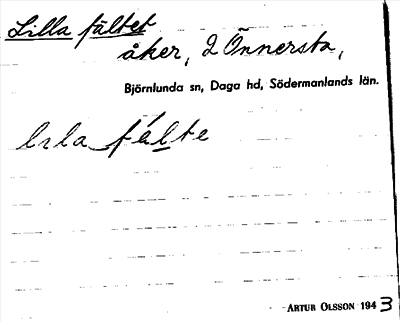 Lilla fältet
åker, 2 Önnersta,
Björnlunda sn, Daga hd, Södermanlands län.
lila fälte
ARTUR OLSSON 1943